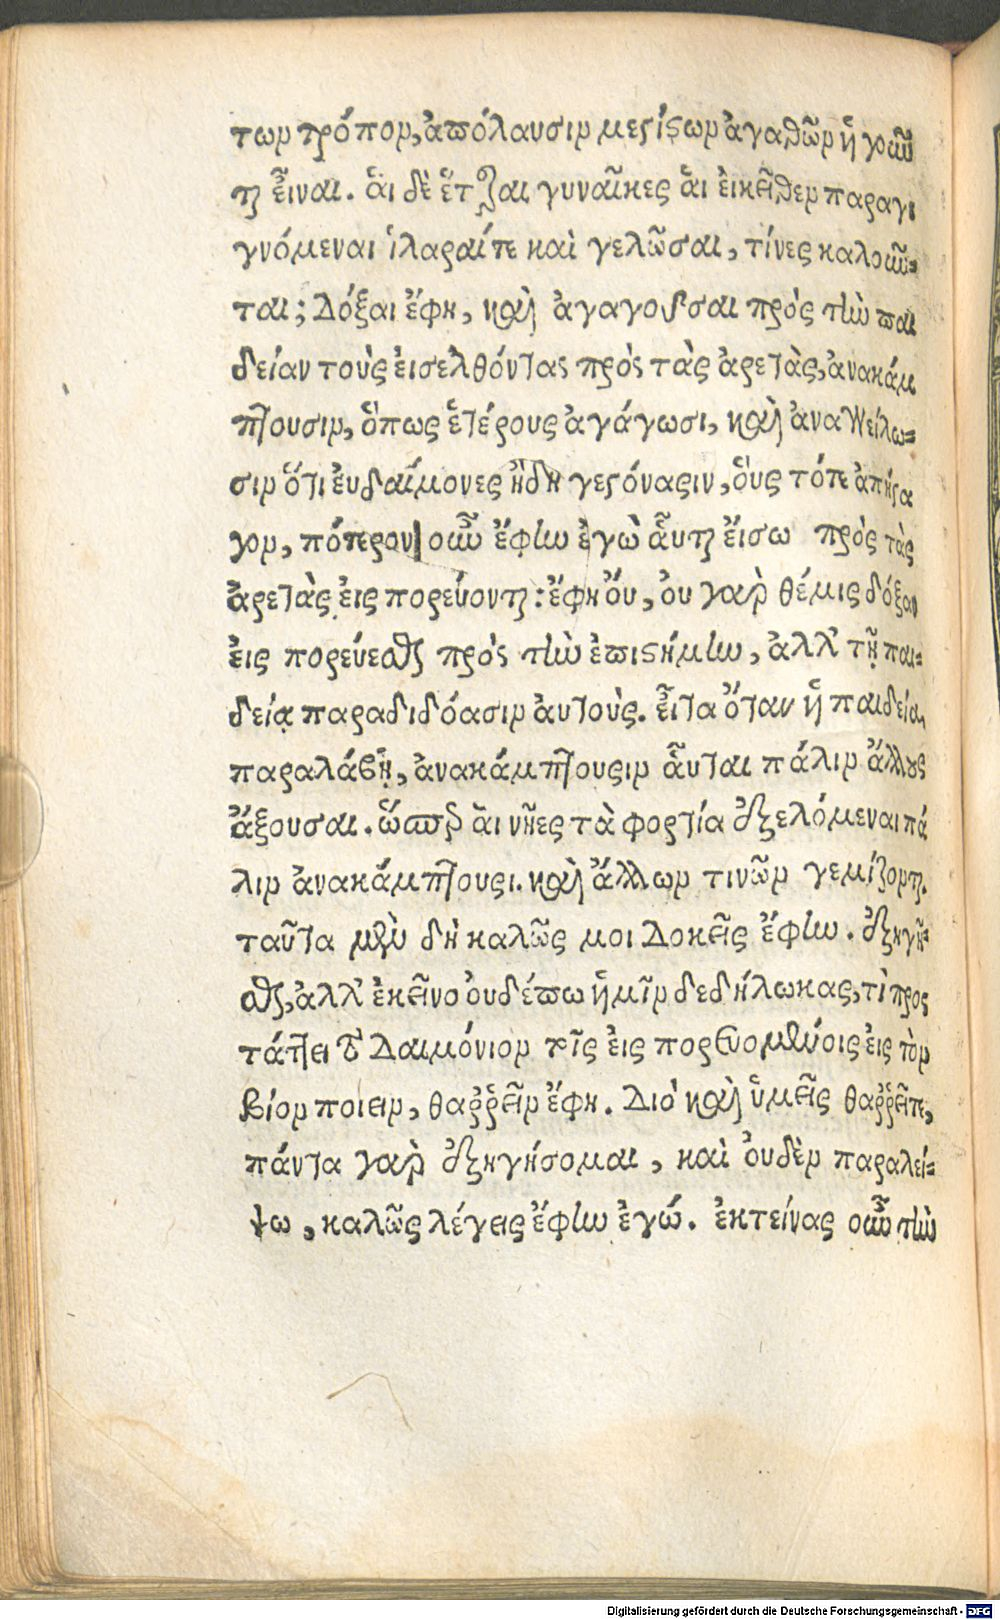 των τρόπον, ἀπόλαυσιν μεγίςων ἀγαθῶν ἡγοῦν
ται εἶναι. ἅι δὲ ἕτεραι γυναῖκες ἅι ἐκεῖθεν παραγι
γνόμεναι ἱλαραίτε καὶ γελῶσαι, τίνες καλοῦν-
ται; Δόξαι ἔφη, καὶ ἀγαγοῦσαι πρὸς τὴν παι
δείαν τοὺς ἐισελθόντας πρὸς τὰς ἀρετὰς, ἀνακάμ
πτουσιν, ὅπως ἑτέρους ἀγάγωσι, καὶ ἀναγγείλω-
σιν ὅτι ἐυδαίμονες ἤδη γεγόνασιν, ὅυς τότε ἀπήγα
γον, πότερον οὖν ἔφην ἐγὼ ἇυται ἔισω πρὸς τὰς
ἀρετὰς ἐις πορεύονται: ἔφη ὄυ, ὀυ γαρ θέμις δόξαν
ἐις πορεύεσθαι πρὸς τὴν ἐπιςήμην, ἀλλὰ τῇ παι-
δείᾳ παραδιδόασιν ἀυτοὺς. εἶτα ὅταν ἡ παιδεία
παραλάβῃ, ἀνακάμπτουσιν ἇυται πάλιν ἄλλους
ἄξουσαι. ὥσπερ ἅι νῆες τὰ φορτία ἐξελόμεναι πά
λιν ἀνακάμπτουσι. καὶ ἄλλων τινῶν γεμίζονται.
ταῦτα μὲν δὴ καλῶς μοι Δοκεῖς ἔφην. ἐξηγῆ-
σθαι, ἀλλ᾽ ἐκεῖνο ὀυδέπω ἡμῖν δεδήλωκας, τὶ προς
τάττει τὸ Δαιμόνιον τοῖς ἐις πορευομένοις ἐις τὸν
βίον ποιειν, θαῤῥεῖν ἔφη. Διὸ καὶ ὑμεῖς θαῤῥεῖτε,
πάντα γαρ ἐξηγήσομαι, καὶ ὀυδὲν παραλεί-
ψω, καλῶς λέγεις ἔφην ἐγώ. ἐκτείνας οὖν τὴν
Digitalisierung gefördert durch die Deutsche Forschungsgemeinschaft - DFG